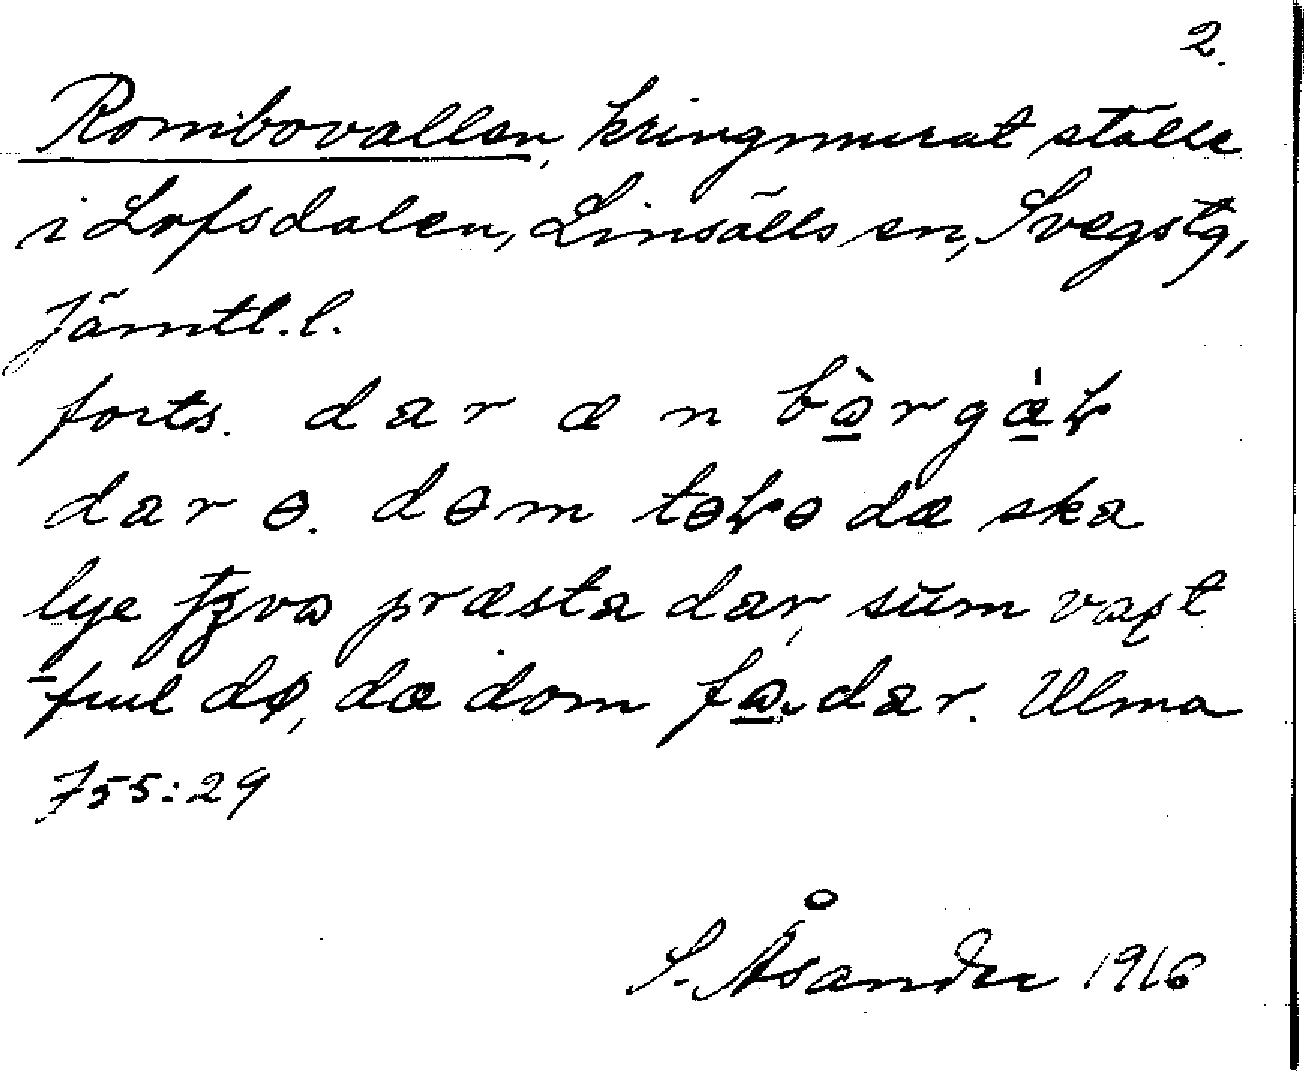 2.
Rombovallen, kringmurat ställe
i Lofsdalen, Linsälls sn, Svegs tg,
Jämtl. l.
forts. dar æ n
dar ө. dөm da ska
lye præsta dar, sum
ful dø, dæ dom dar. Ulma
755:29
S. Åsander 1916